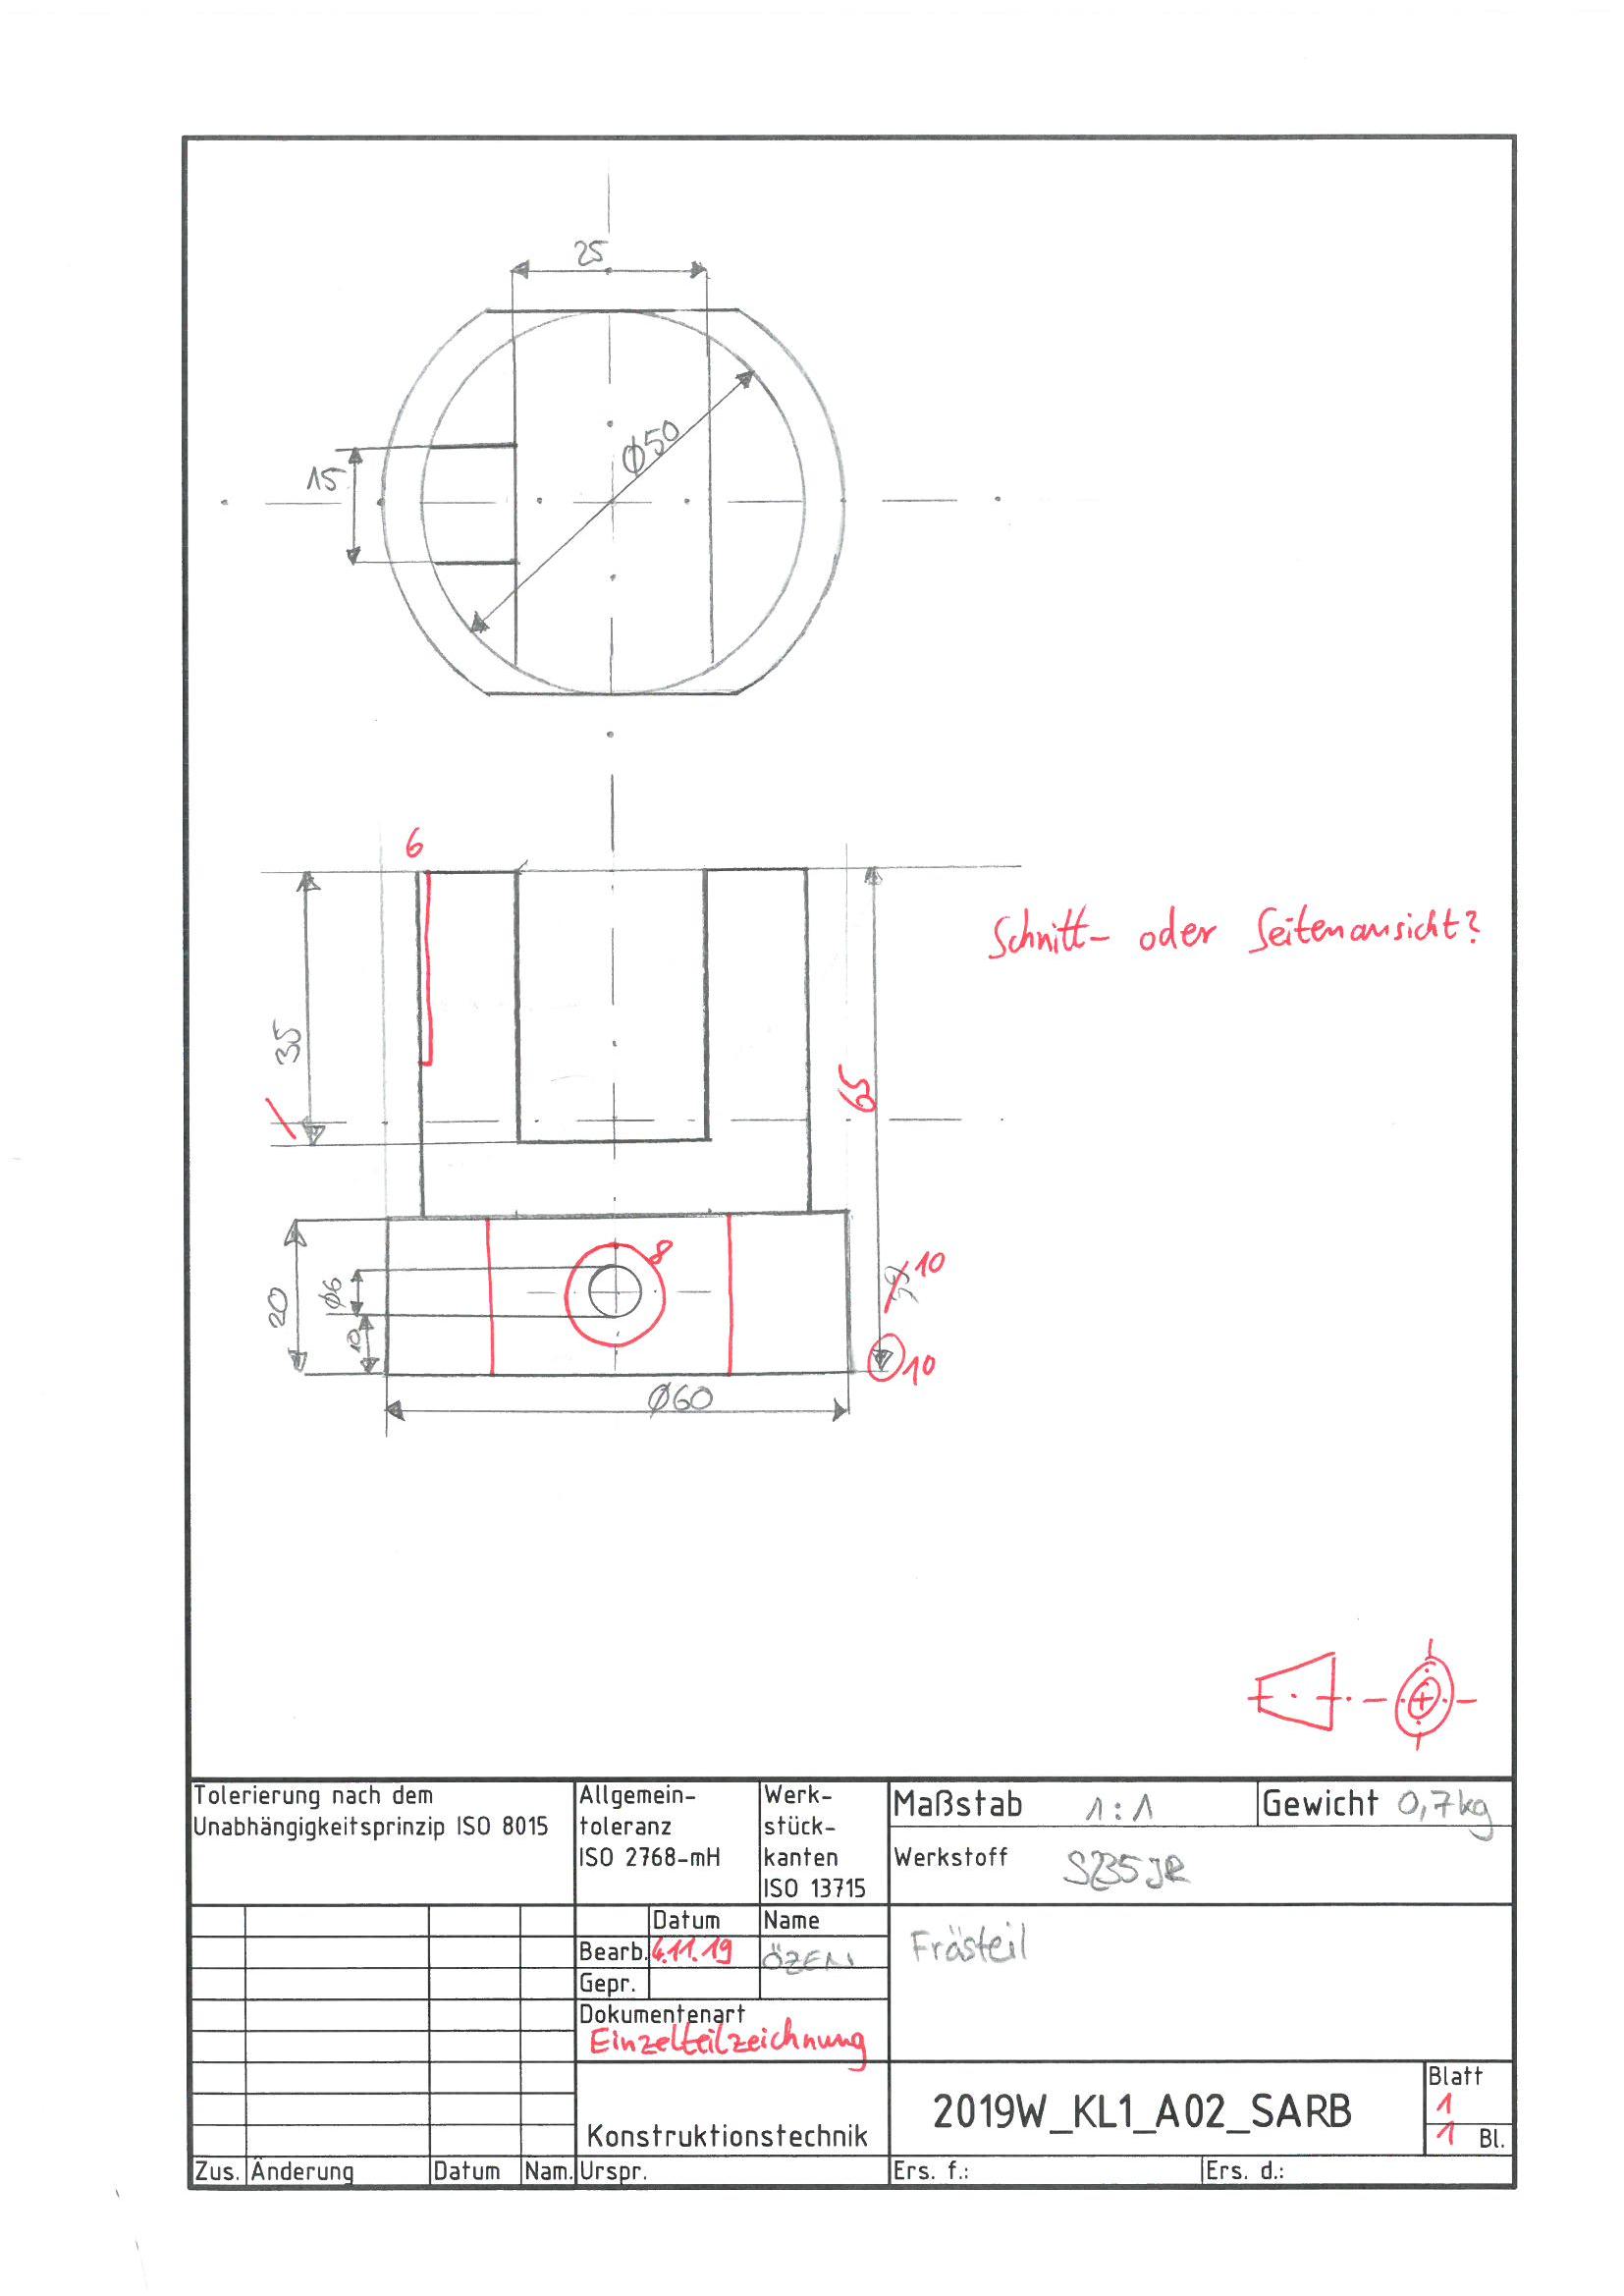 25
Ø50
15
6
Schnitt- oder Seitenansicht?
35
65
8
10
20
Ø6
10
10
Ø60
Tolerierung nach dem
Unabhängigkeitsprinzip ISO 8015
Allgemein-
toleranz
ISO 2768-mH
Werk-
stück-
kanten
ISO 13715
Maßstab 1:1
Gewicht 0,7kg
Werkstoff S235JR
Datum Name
Bearb. 4.11.19 ÖZEN
Gepr.
Frästeil
Dokumentenart
Einzelteilzeichnung
Konstruktionstechnik
2019W_KL1_A02_SARB
Blatt
1
1 Bl.
Zus. Änderung Datum Nam. Urspr. Ers. f.: Ers. d.: